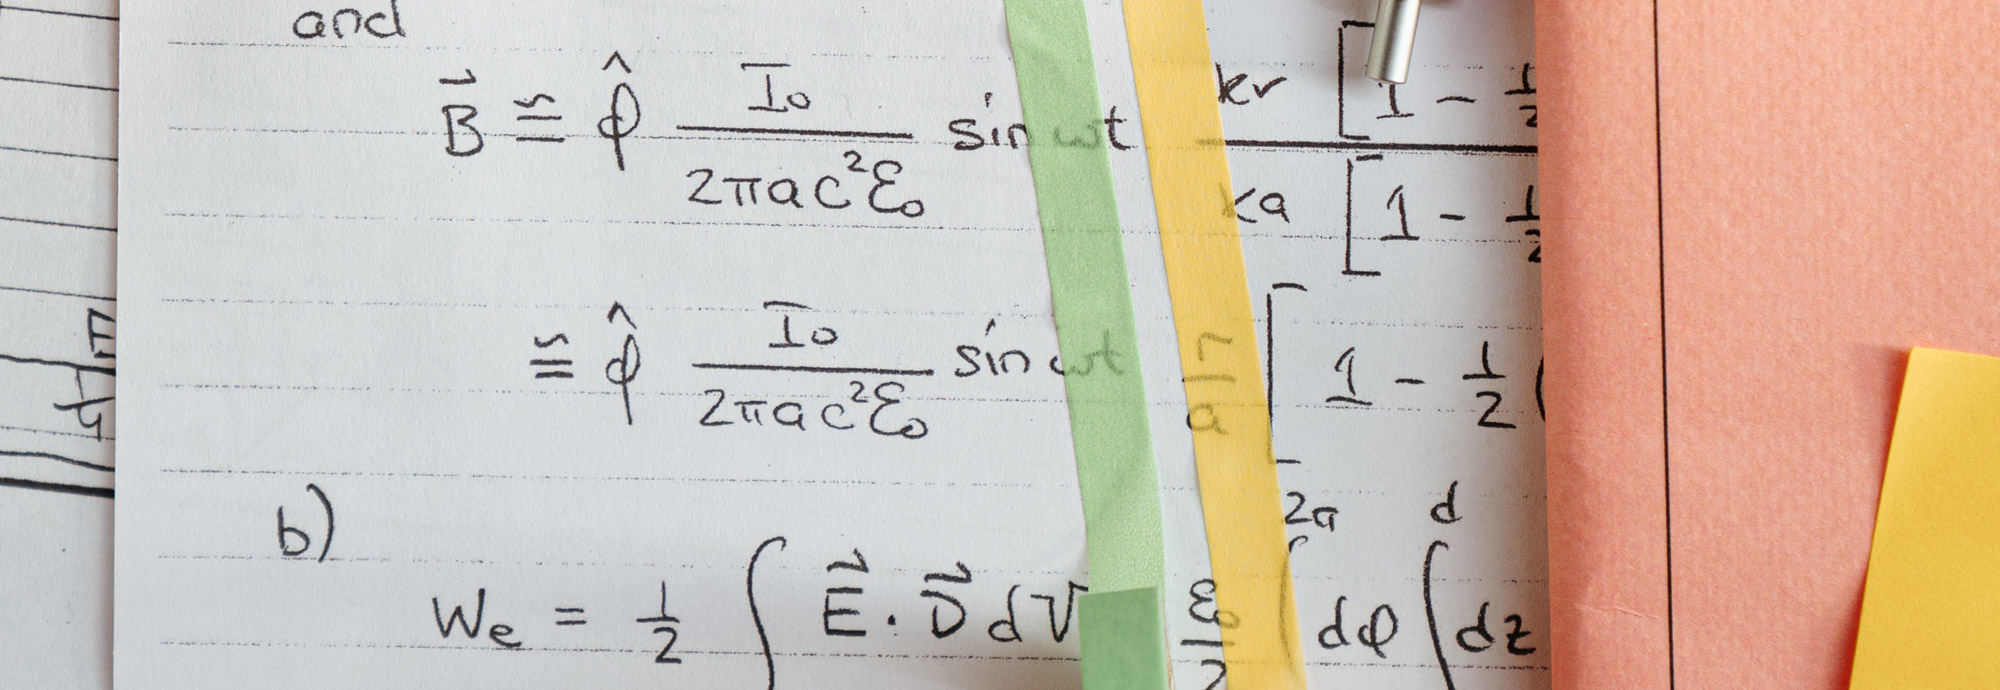 and
B⃗ ≅ φ̂ I₀ / 2πac²ε₀ sin ωt kr [1 - 1/2 / ka [1 - 1/2
≅ φ̂ I₀ / 2πac²ε₀ sin ωt r/a [1 - 1/2 (
b)
We = 1/2 ∫ E⃗ · D⃗ dV ε₀/2 ∫ 2π dφ ∫ d dz